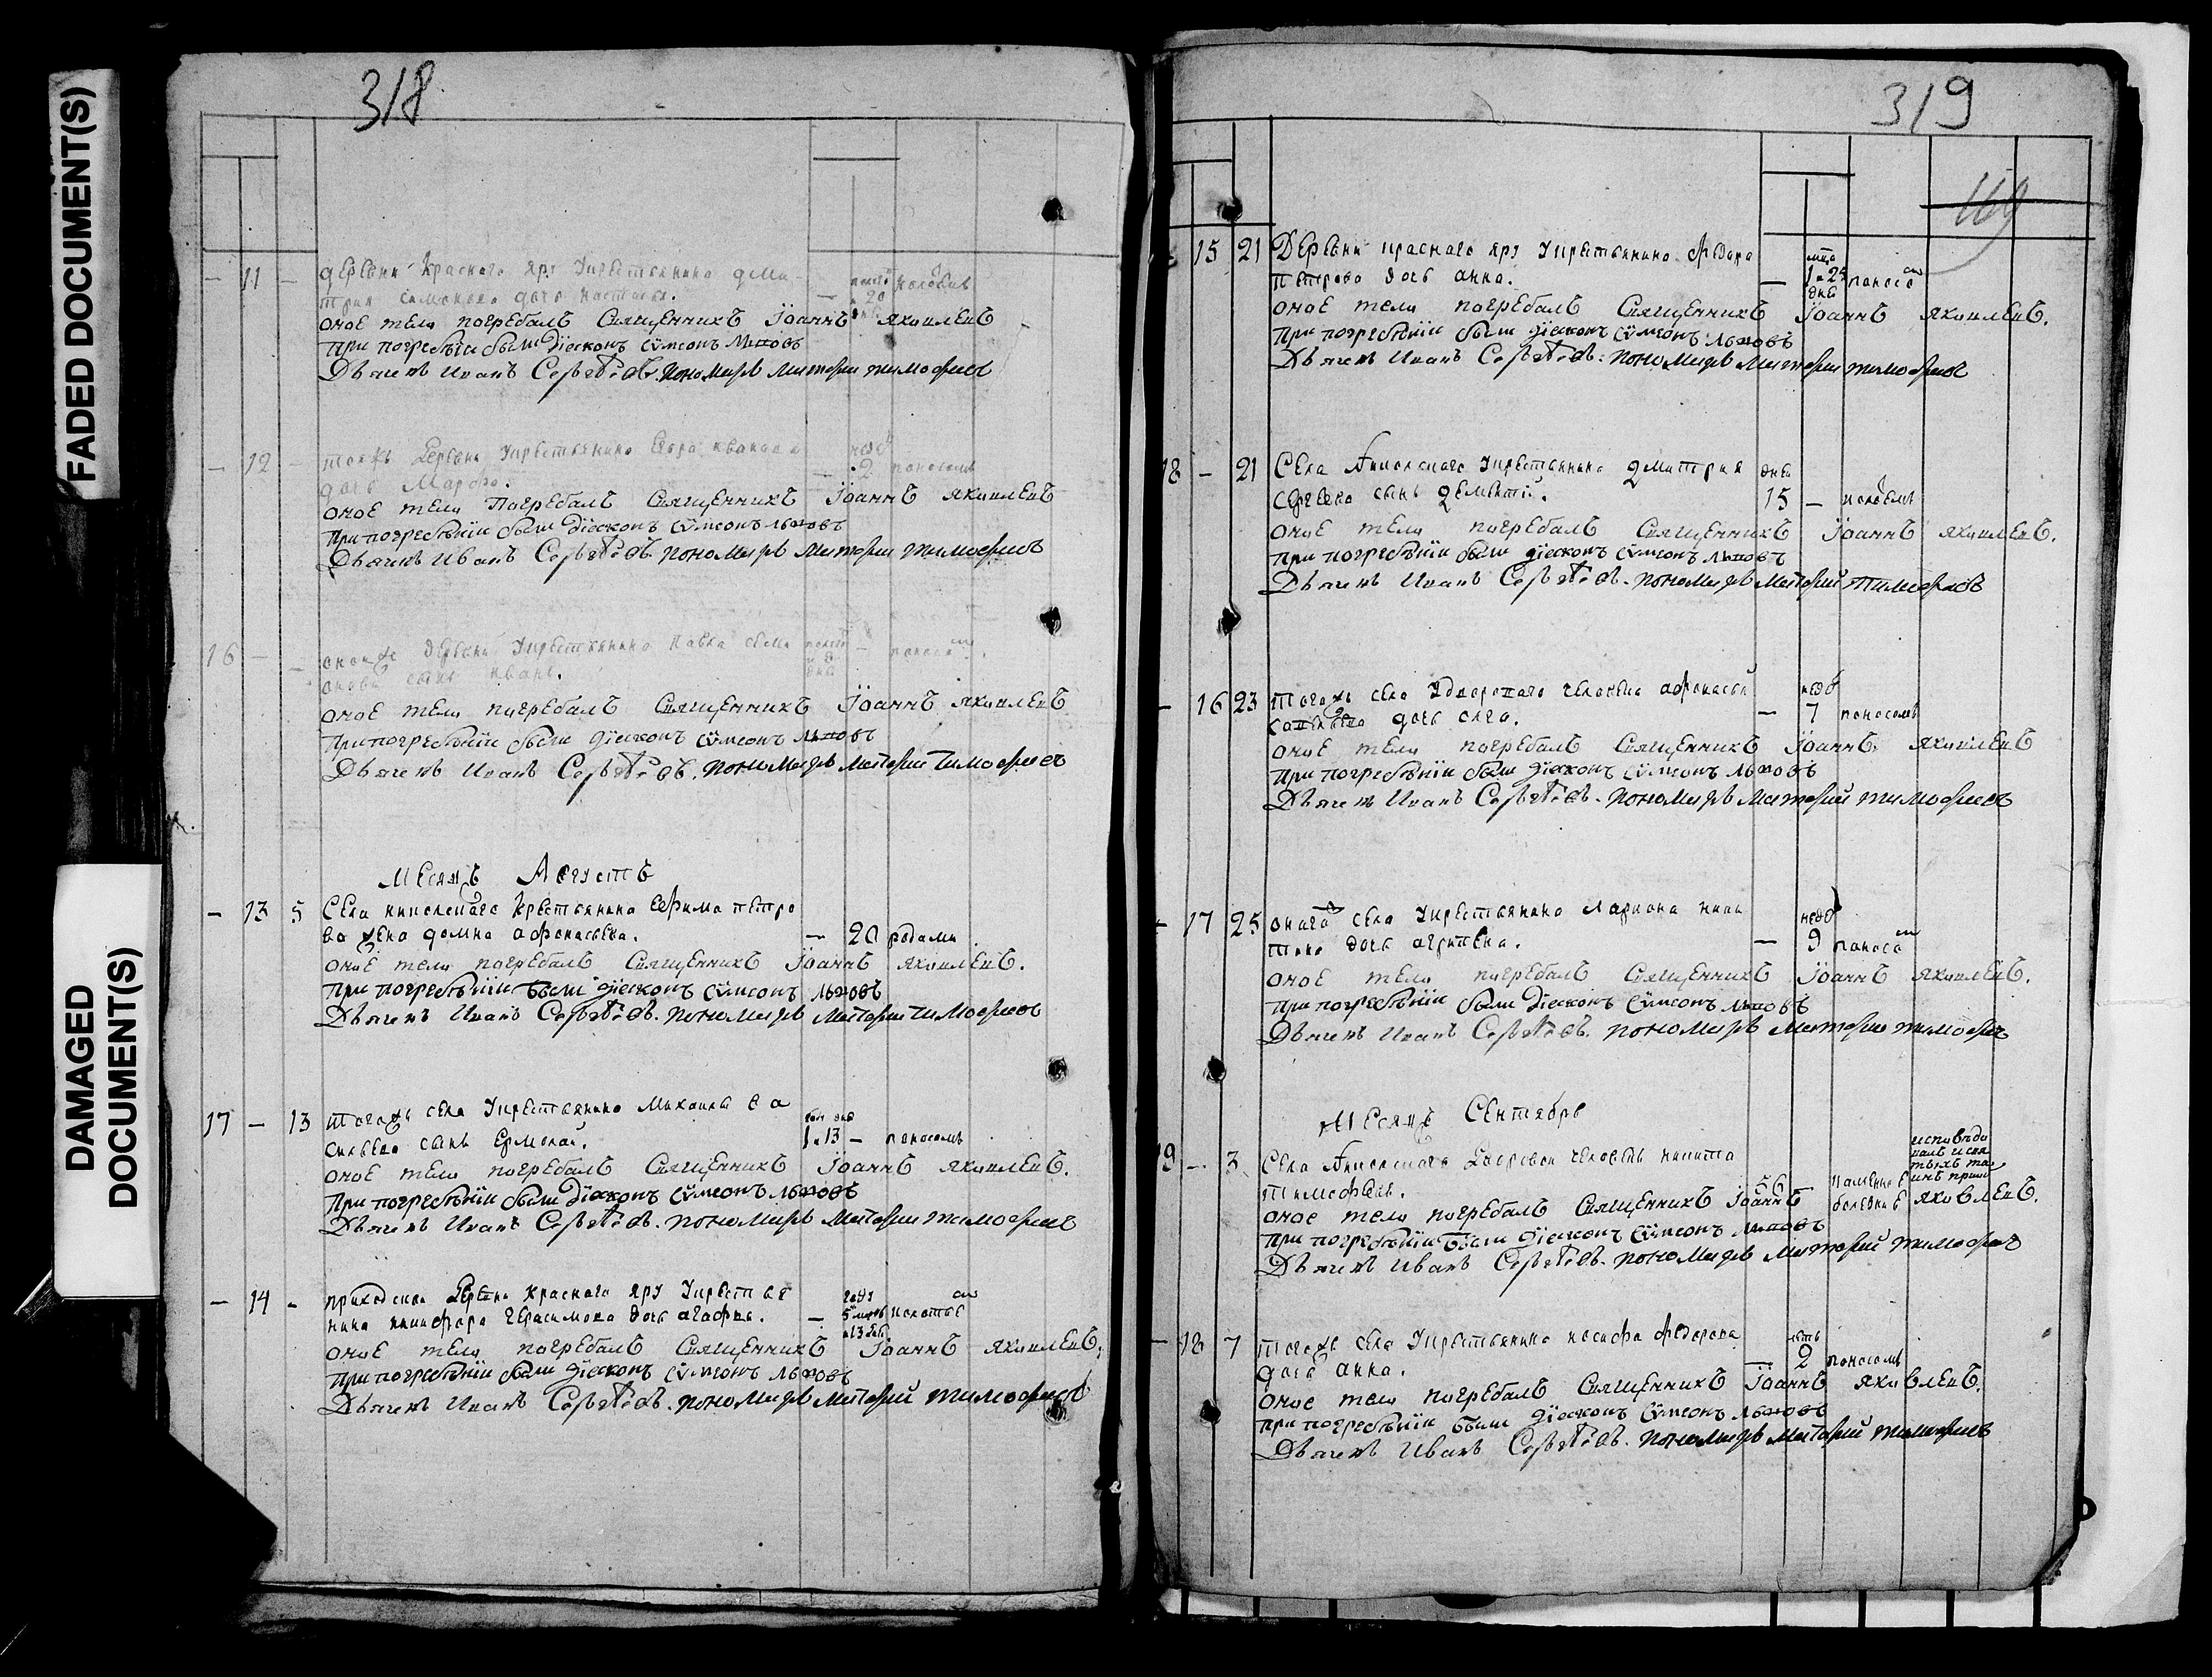 FADED DOCUMENT(S)
DAMAGED DOCUMENT(S)
318
— 11 — деревни Красного яру Уирестьянина дми
трия дочь настасья.
оное тело погребалъ Священникъ Іоаннъ Яковлевъ
При погребеніи были Діаконъ Сѵмеонъ Львовъ
Дьячекъ Иванъ пономарь Матфей тимофеевъ
— 12 — тояжъ деревни Уирестьянина
дочь Марфа. 2 поносомъ
оное тело Погребалъ Священникъ Іоаннъ Яковлевъ
При погребеніи были Діаконъ Сѵмеонъ Львовъ
Дьячекъ Иванъ пономарь Матфей тимофеевъ
16 — — оноиже деревни Уирестьянина Павла семи
онова сынъ иванъ. —
оное тело погребалъ Священникъ Іоаннъ Яковлевъ
При погребеніи были діаконъ Сѵмеонъ Львовъ
Дьячекъ Иванъ пономарь Матфей тимофеевъ
Месяцъ Августъ
— 13 5 Села николскаго крестьянина Ефима петро
ва жена домна афонасьева. — 20 родами
оное тело погребалъ Священникъ Іоаннъ Яковлевъ.
При погребеніи были діаконъ Сѵмеонъ Львовъ
Дьячекъ Иванъ пономарь Матфей тимофеевъ
17 — 13 тогожъ села Уирестьянина Михаила ва
сильева сынъ Ермолай. 1 и 13 — поносомъ
оное тело погребалъ Священникъ Іоаннъ Яковлевъ.
При погребеніи были Діаконъ Сѵмеонъ Львовъ
Дьячекъ Иванъ пономарь Матфей тимофеевъ
— 14 - приходской деревни Красного яру Уирестья
нина никифора герасимова дочь агафья. —
оное тело погребалъ Священникъ Іоаннъ Яковлевъ.
При погребеніи были діаконъ Сѵмеонъ Львовъ
Дьячекъ Иванъ пономарь Матфей тимофеевъ
319
169
15 21 Деревни красного яру Уирестьянина федора
петрова дочь анна. — 1 и 25 дней поносом
оное тело погребалъ Священникъ Іоаннъ Яковлевъ.
При погребеніи были діаконъ Сѵмеонъ Львовъ
Дьячекъ Иванъ пономарь Матфей тимофеевъ
18 — 21 Села Никольскаго Уирестьянина Дмитрия дней
сергеева сынъ Дементий. 15 —
оное тело погребалъ Священникъ Іоаннъ Яковлевъ.
При погребеніи были діаконъ Сѵмеонъ Львовъ
Дьячекъ Иванъ пономарь Матфей Тимофеевъ
— 16 23 тогожъ села Удворового человека афонасья недел
дочь олга. — 7 поносомъ
оное тело погребалъ Священникъ Іоаннъ Яковлевъ
При погребеніи были діаконъ Сѵмеонъ Львовъ
Дьячекъ Иванъ пономарь Матфей тимофеевъ
— 17 25 онаго села Уирестьянина Лариона ники недел
тина дочь агрипена. — 9 поносом
оное тело погребалъ Священникъ Іоаннъ Яковлевъ.
При погребеніи были Діаконъ Сѵмеонъ Львовъ
Дьячекъ Иванъ пономарь Матфей тимофеев
Месяцъ Сентябрь
19 — 3 Села Никольскаго Дворовой человекъ никита
Тимофеевъ. 56
оное тело погребалъ Священникъ Іоаннъ Яковлевъ.
При погребеніи были діаконъ Сѵмеонъ Львовъ
Дьячекъ Иванъ пономарь Матфей тимофеев
— 18 7 тогожъ села Уирестьянина иосифа федорова летъ
дочь анна. — 2 поносомъ
оное тело погребалъ Священникъ Іоаннъ Яковлевъ.
При погребеніи были діаконъ Сѵмеонъ Львовъ
Дьячекъ Иванъ пономарь Матфей тимофеевъ